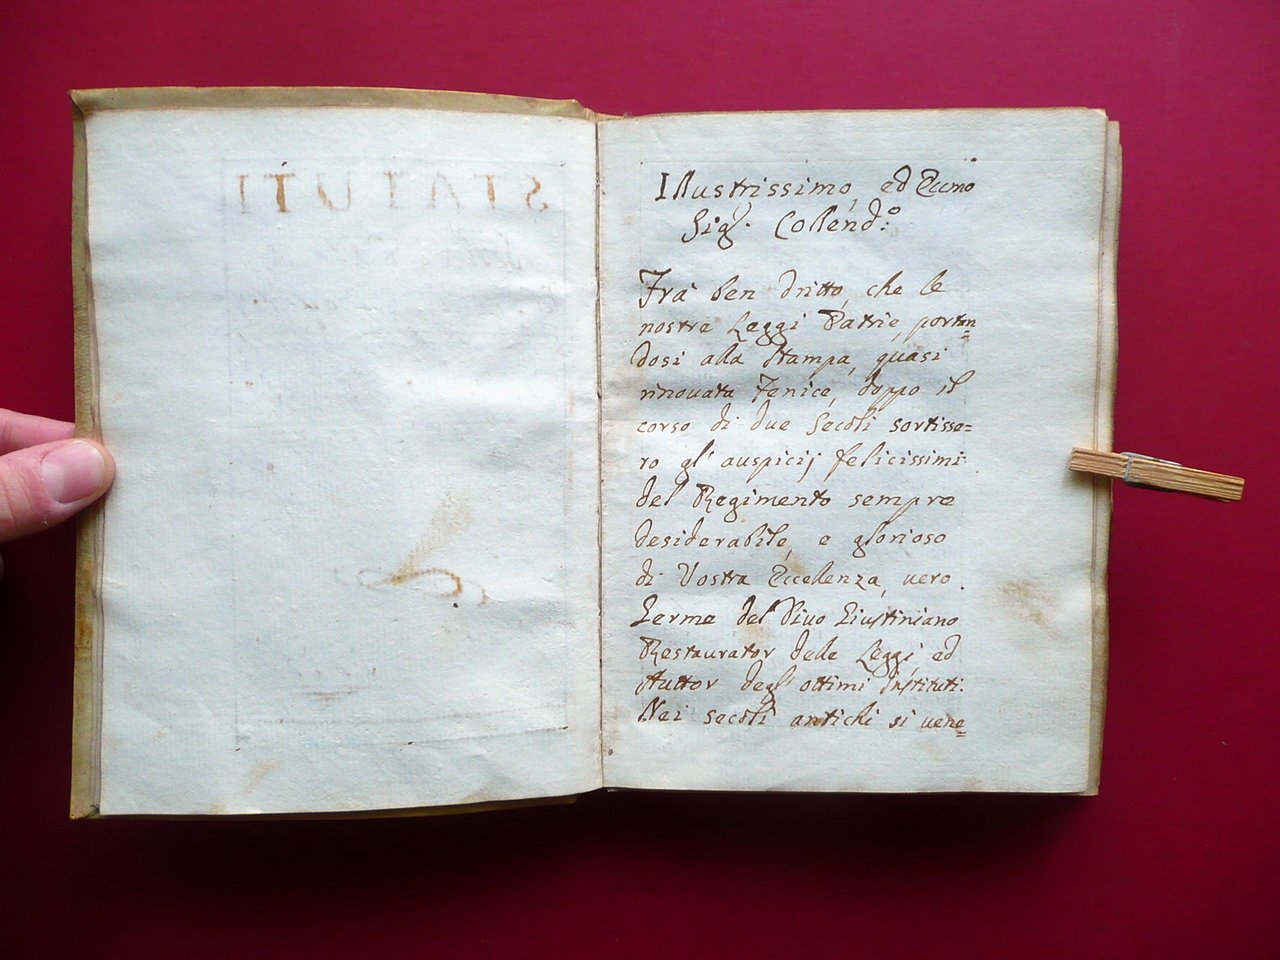 STATUTI
Illustrissimo, ed Eccmo
Sigr. Collendo:
Frà ben dritto, che le
nostre Leggi Patrie, portan=
dosi alla Stampa, quasi
rinouata Fenice, doppo il
corso di due Secoli sortisse=
ro gl' auspicij felicissimi
del Regimento sempre
desiderabile, e glorioso
di Vostra Eccellenza, uero
Germe del Diuo Giustiniano
Restaurator delle Leggi, ed
Auttor degl' ottimi Instituti.
Nei secoli antichi si uene=